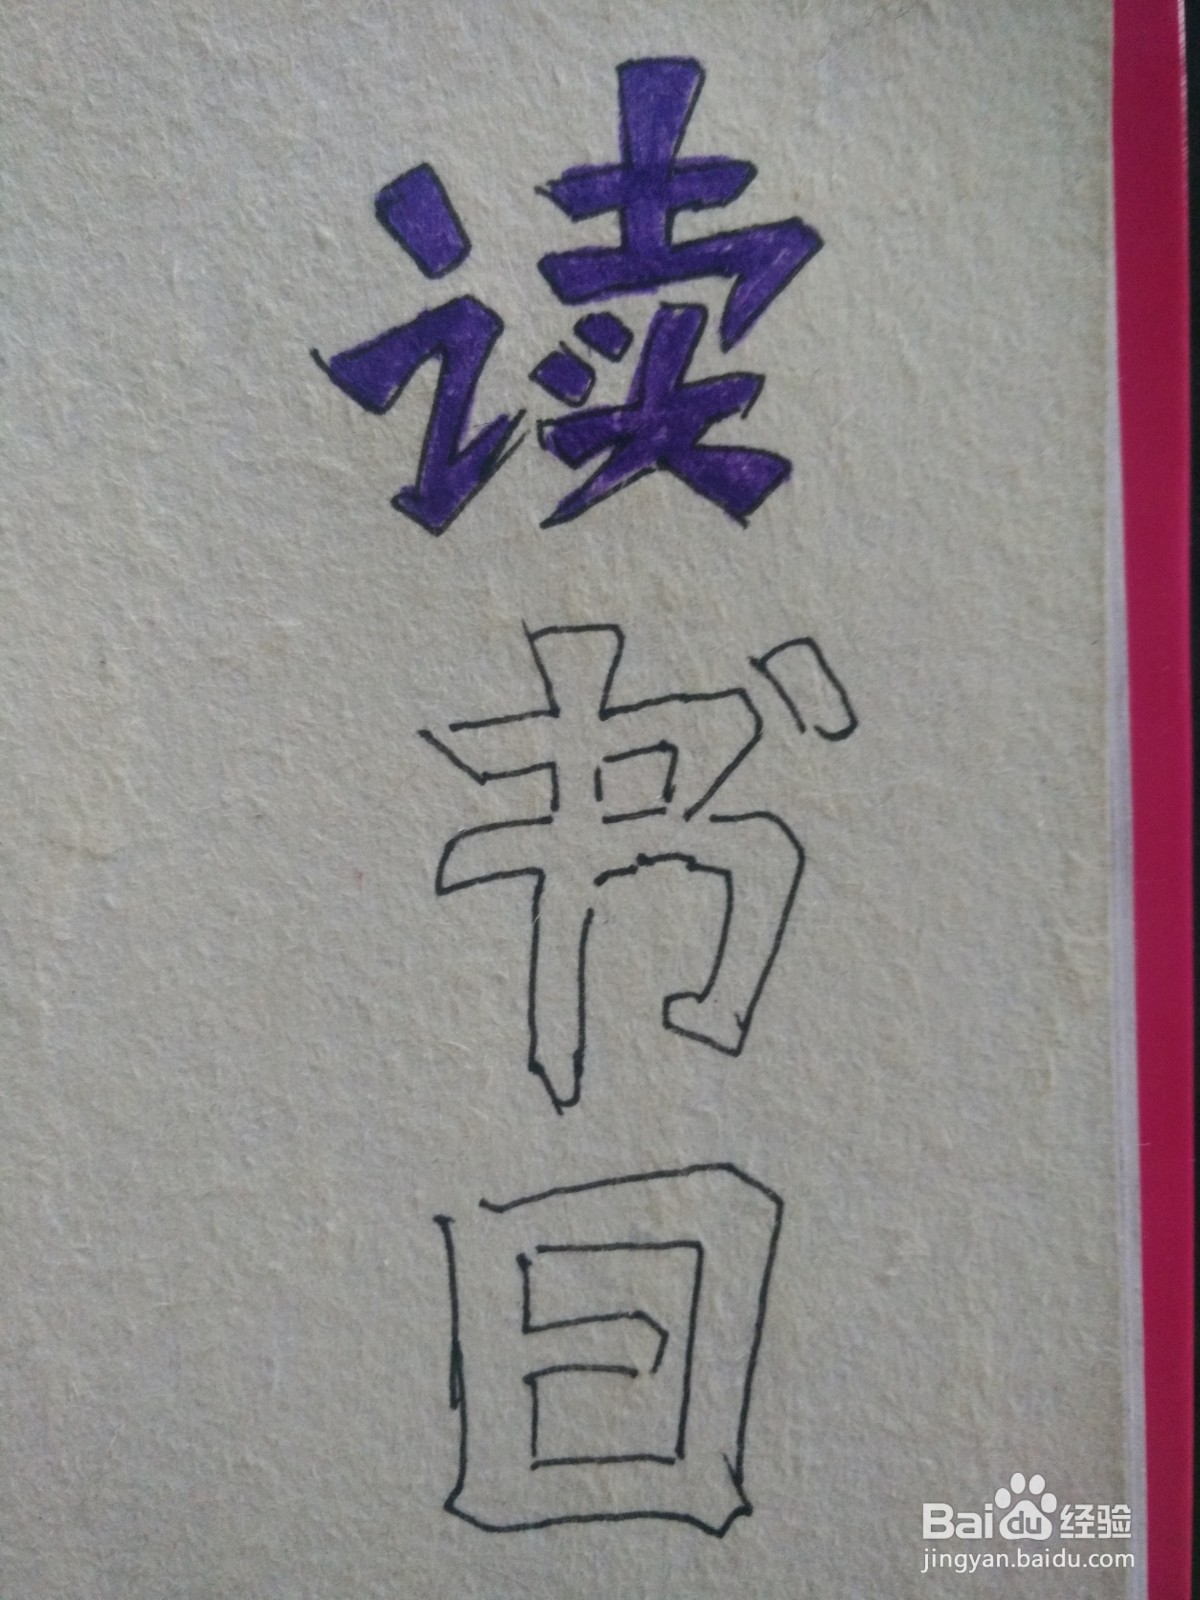 读书日
Baidu经验
jingyan.baidu.com